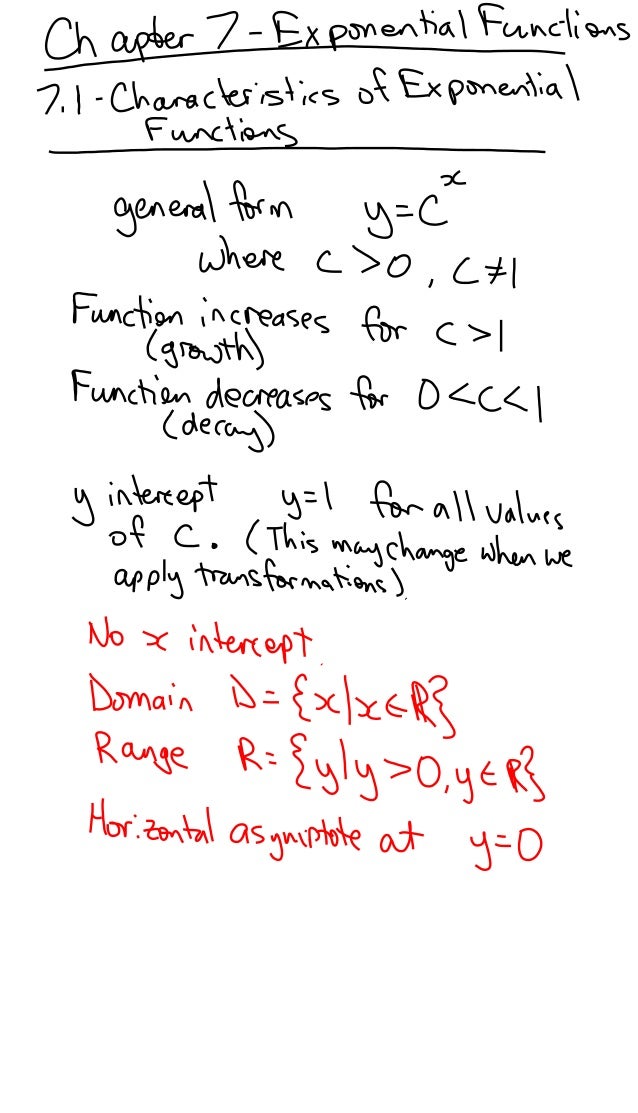 Chapter 7 - Exponential Functions
7.1 - Characteristics of Exponential
Functions
general form y=c^x
where c>0, c≠1
Function increases for c>1
(growth)
Function decreases for 0<c<1
(decay)
y intercept y=1 for all values
of c. (This may change when we
apply transformations).
No x intercept.
Domain D={x|x∈R}
Range R={y|y>0,y∈R}
Horizontal asymptote at y=0